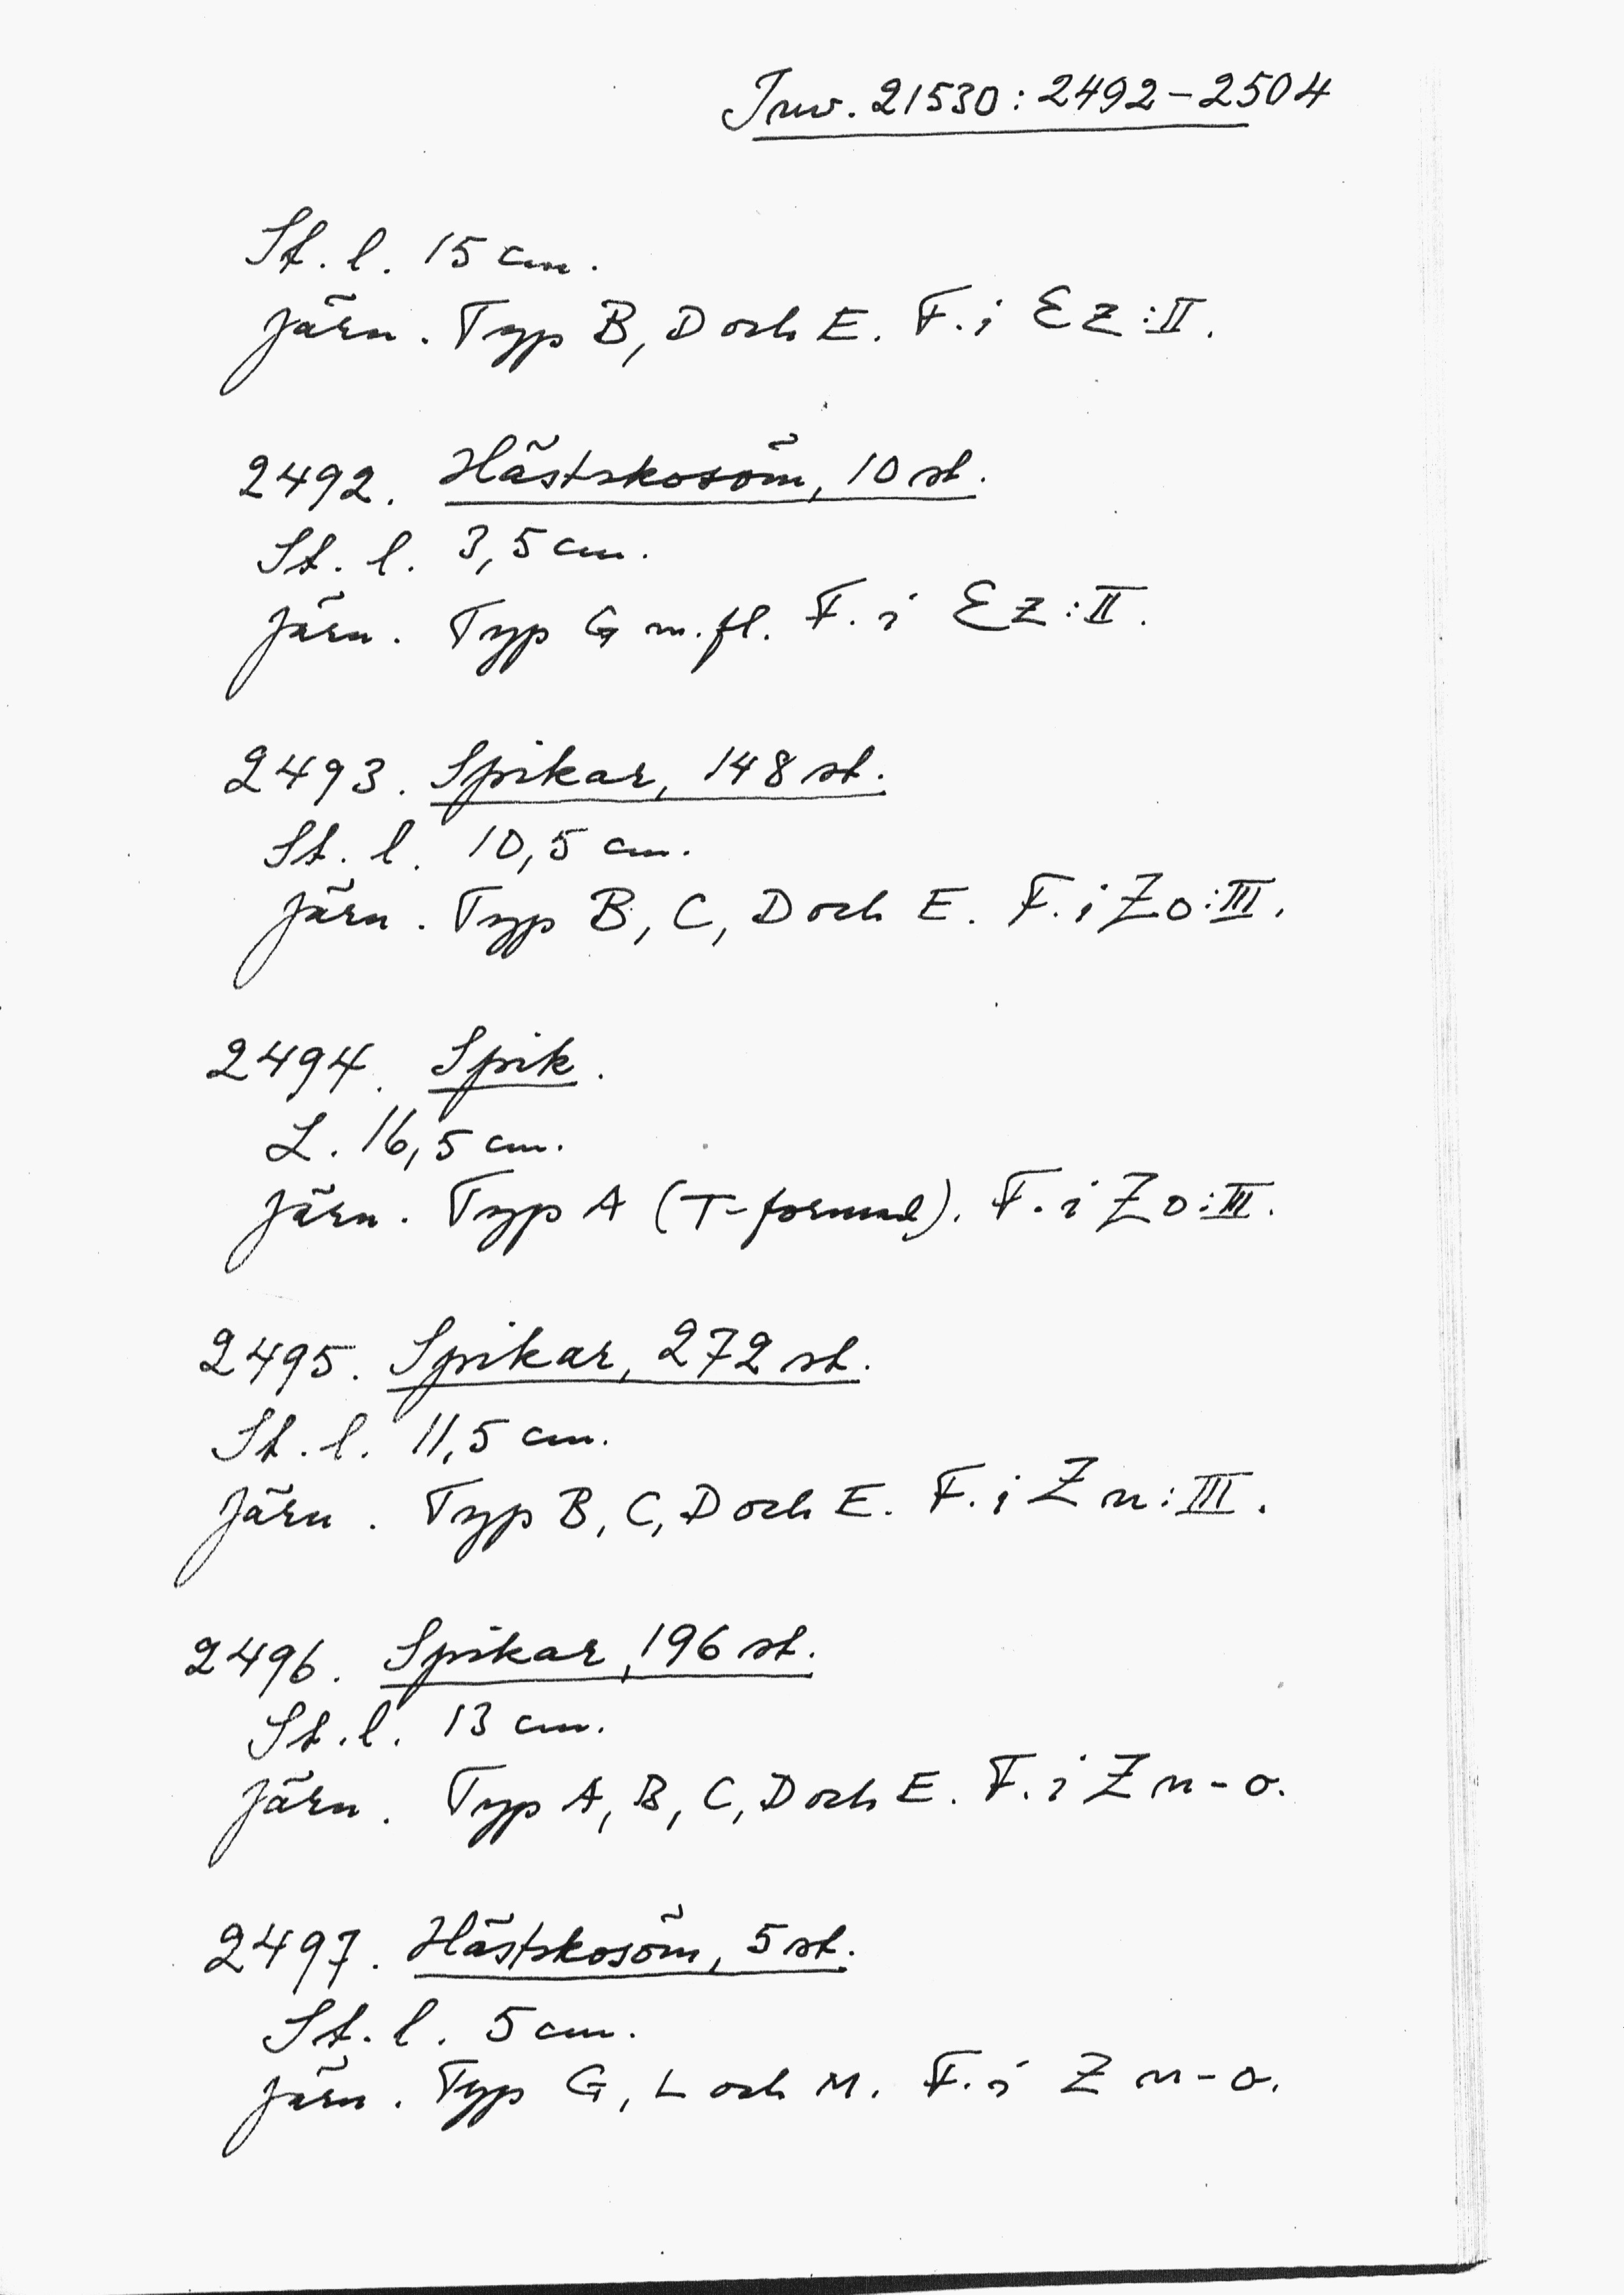 Inv. 21530: 2492-2504
St. l. 15 cm.
Järn. Typ B, D och E. F. i Ez:II.
2492. Hästskosöm, 10 st.
St. l. 3,5 cm.
Järn. Typ G m. fl. F. i Ez:II.
2493. Spikar, 148 st.
St. l. 10,5 cm.
Järn. Typ B, C, D och E. F. i Zo:III.
2494. Spik.
L. 16,5 cm.
Järn. Typ A (T-formad). F. i Zo:III.
2495. Spikar, 272 st.
St. l. 11,5 cm.
Järn. Typ B, C, D och E. F. i Zn:III.
2496. Spikar, 196 st.
St. l. 13 cm.
Järn. Typ A, B, C, D och E. F. i Zn-o.
2497. Hästskosöm, 5 st.
St. l. 5 cm.
Järn. Typ G, L och M. F. i Zn-o.